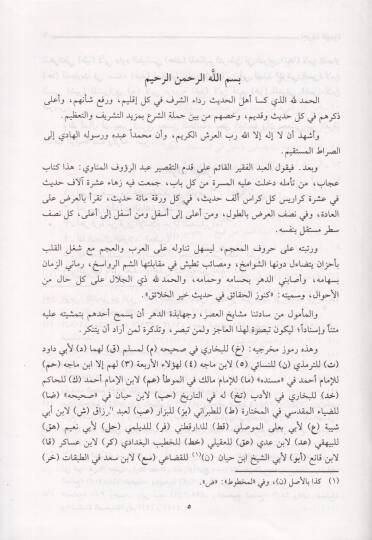 بسم اللَّه الرحمن الرحيم
الحمد لله الذي كسا أهل الحديث رداء الشرف في كل إقليم، ورفع شأنهم، وأعلى
ذكرهم في كل حديث وقديم، وخصهم من بين حملة الشرع بمزيد التشريف والتعظيم.
وأشهد أن لا إله إلا الله رب العرش الكريم، وأن محمداً عبده ورسوله الهادي إلى
الصراط المستقيم.
وبعد. فيقول العبد الفقير القائم على قدم التقصير عبد الرؤوف المناوي: هذا كتاب
عجاب، من تأمله دخلت عليه المسرة من كل باب، جمعت فيه زهاء عشرة آلاف حديث
في عشرة كراريس كل كراس ألف حديث، في كل ورقة مائة حديث، تقرأ بالعرض على
العادة، وفي نصف العرض بالطول، ومن أعلى إلى أسفل ومن أسفل إلى أعلى، كل نصف
سطر مستقل بنفسه.
ورتبته على حروف المعجم، ليسهل تناوله على العرب والعجم مع شغل القلب
بأحزان يتضاءل دونها الشوامخ، ومصائب تطيش في مقابلتها الشم الرواسخ، رماني الزمان
بسهامه، وأصابني الدهر بحسامه وحمامه، والحمد لله ذي الجلال على كل حال من
الأحوال، وسميته: «كنوز الحقائق في حديث خير الخلائق».
والمأمول من سادتنا مشايخ العصر، وجهابذة الدهر أن يسمح أحدهم بتمشيته عليه
متناً وإسناداً؛ ليكون تبصرة لهذا العاجز ولمن تبصر، وتذكرة لمن أراد أن يتنكر.
وهذه رموز مخرجيه: (خ) للبخاري في صحيحه (م) لمسلم (ق) لهما (د) لأبي داود
(ت) للترمذي (ن) للنسائي (ه) لابن ماجه (4) لهؤلاء الأربعة (٣) لهم إلا ابن ماجه (حم)
للإمام أحمد في «مسنده» (ما) للإمام مالك في الموطأ (عم) لابن الإمام أحمد (ك) للحاكم
(خد) للبخاري في الأدب (تخ) له في التاريخ (حب) لابن حبان في «صحيحه» (ضا)
للضياء المقدسي في المختارة (ط) للطبراني (بز) للبزار (عب) لعبد الرزاق (ش) لابن أبي
شيبة (ع) لأبي يعلى الموصلي (قط) للدارقطني (فر) للديلمي (حل) لأبي نعيم (هق)
للبيهقي (عد) لابن عدي (عق) للعقيلي (خط) للخطيب البغدادي (كر) لابن عساكر (قا)
لابن قانع (أبو) لأبي الشيخ ابن حيان (ن)(١) للقضاعي (سع) لابن سعد في الطبقات (خر)
(١) كذا بالأصل (ن)، وفي «المخطوط»: «ض».
٥